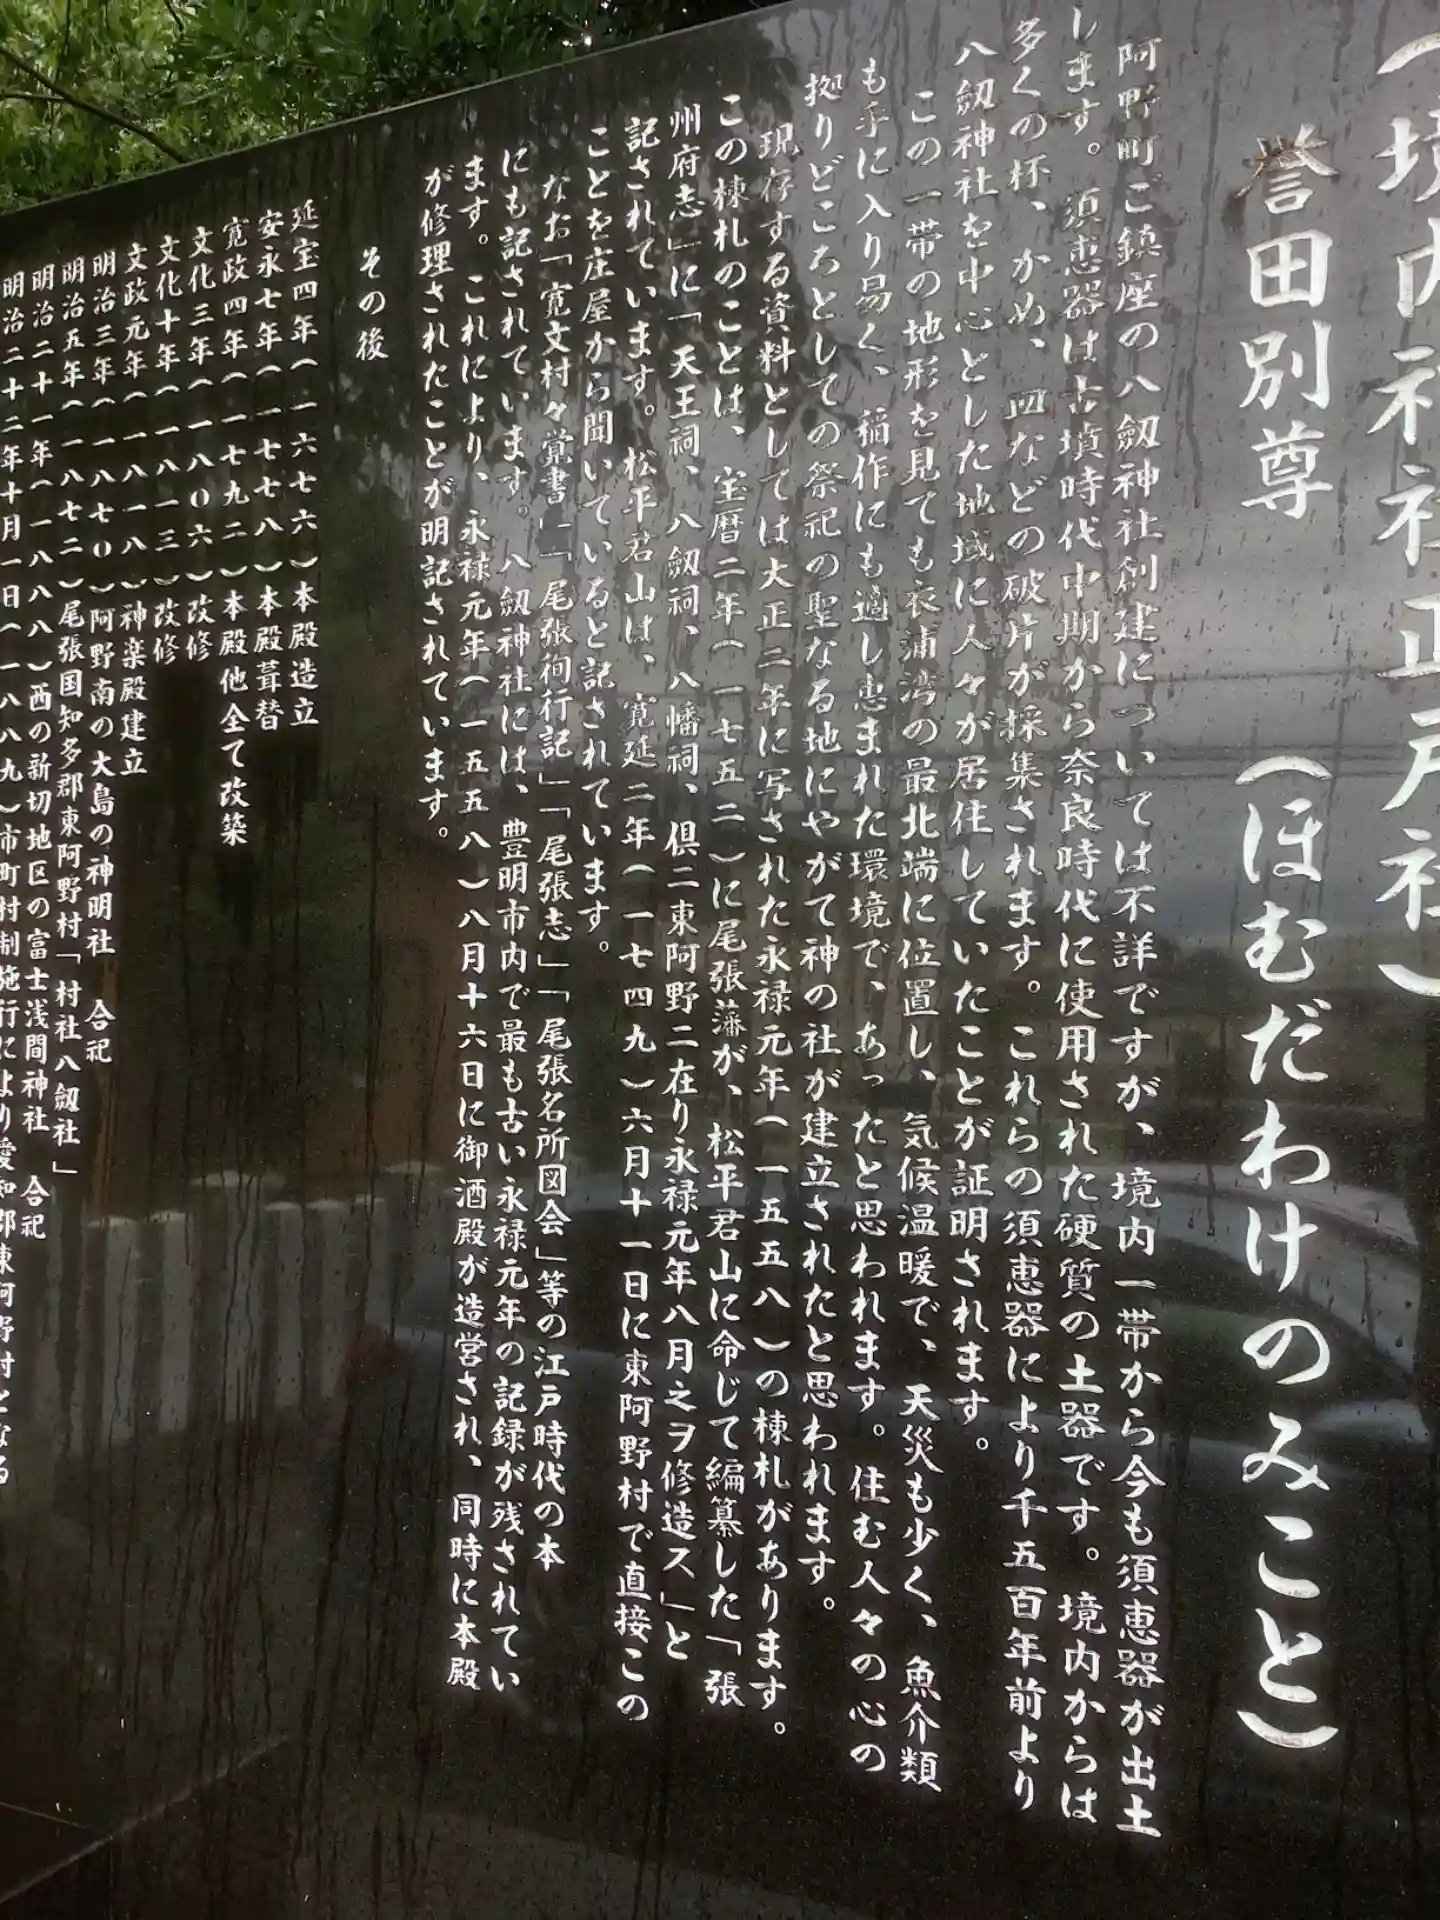 (境内神社正戸社)
誉田別尊 (ほむだわけのみこと)
阿野町ご鎮座の八劔神社創建については不詳ですが、境内一帯から今も須恵器が出土
します。須恵器は古墳時代中期から奈良時代に使用された硬質の土器です。境内からは
多くの杯、かめ、皿などの破片が採集されます。これらの須恵器により千五百年前より
八劔神社を中心とした地域に人々が居住していたことが証明されます。
この一帯の地形を見ても衣浦湾の最北端に位置し、気候温暖で、天災も少く、魚介類
も手に入り易く、稲作にも適し恵まれた環境で、あったと思われます。住む人々の心の
拠りどころとしての祭祀の聖なる地にやがて神の社が建立されたと思われます。
現存する資料としては大正二年に写された永禄元年(一五五八)の棟札があります。
この棟札のことは、宝暦二年(一七五二)に尾張藩が、松平君山に命じて編纂した「張
州府志」に「天王祠、八劔祠、八幡祠、倶二東阿野二在り永禄元年八月之ヲ修造ス」と
記されています。松平君山は、寛延二年(一七四九)六月十一日に東阿野村で直接この
ことを庄屋から聞いていると記されています。
なお「寛文村々覚書」「尾張徇行記」「尾張志」「尾張名所図会」等の江戸時代の本
にも記されています。八劔神社には、豊明市内で最も古い永禄元年の記録が残されてい
ます。これにより、永禄元年(一五五八)八月十六日に御酒殿が造営され、同時に本殿
が修理されたことが明記されています。
その後
延宝四年(一六七六)本殿造立
安永七年(一七七八)本殿葺替
寛政四年(一七九二)本殿他全て改築
文化三年(一八〇六)改修
文化十年(一八一三)改修
文政元年(一八一八)神楽殿建立
明治三年(一八七〇)阿野南の大島の神明社 合祀
明治五年(一八七二)尾張国知多郡東阿野村「村社八劔社」
明治二十一年(一八八八)西の新切地区の富士浅間神社 合祀
明治二十二年十月一日(一八八九)市町村制施行により愛知郡東阿野村となる